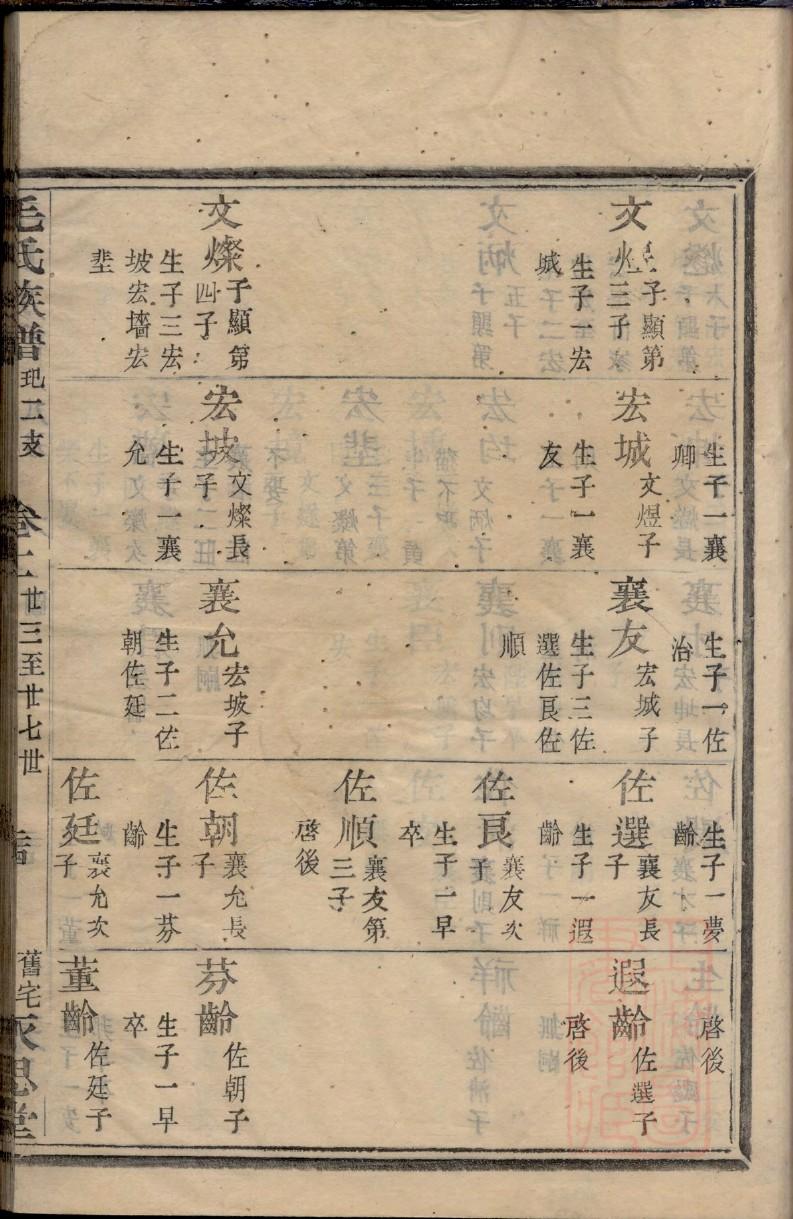 文煜子顯第
三子
生子一宏
城
文燦子顯第
四子
生子三宏
坡宏墻宏
垩
生子一襄
卿
宏城文煜子
生子一襄
友
宏坡文燦長
子
生子一襄
允
生子一佐
治
襄友宏城子
生子三佐
選佐良佐
順
襄允宏坡子
生子二佐
朝佐廷
生子一夢
齡
佐選襄友長
子
生子一遐
齡
佐良襄友次
子
生子一早
卒
佐順襄友第
三子
啓後
佐朝襄允長
子
生子一芬
齡
佐廷襄允次
子
啓後
遐齡佐選子
啓後
芬齡佐朝子
董齡佐廷子
生子一早
卒
毛氏族譜 玘二支 卷二 廿三至廿七世 舊宅永思堂